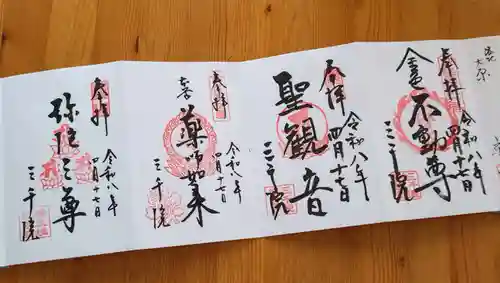 奉拝
金色不動尊
令和八年
四月十七日
三千院
奉拝
聖観音
令和八年
四月十七日
三千院
奉拝
薬師如来
令和八年
四月十七日
三千院
奉拝
弥陀三尊
令和八年
四月十七日
三千院